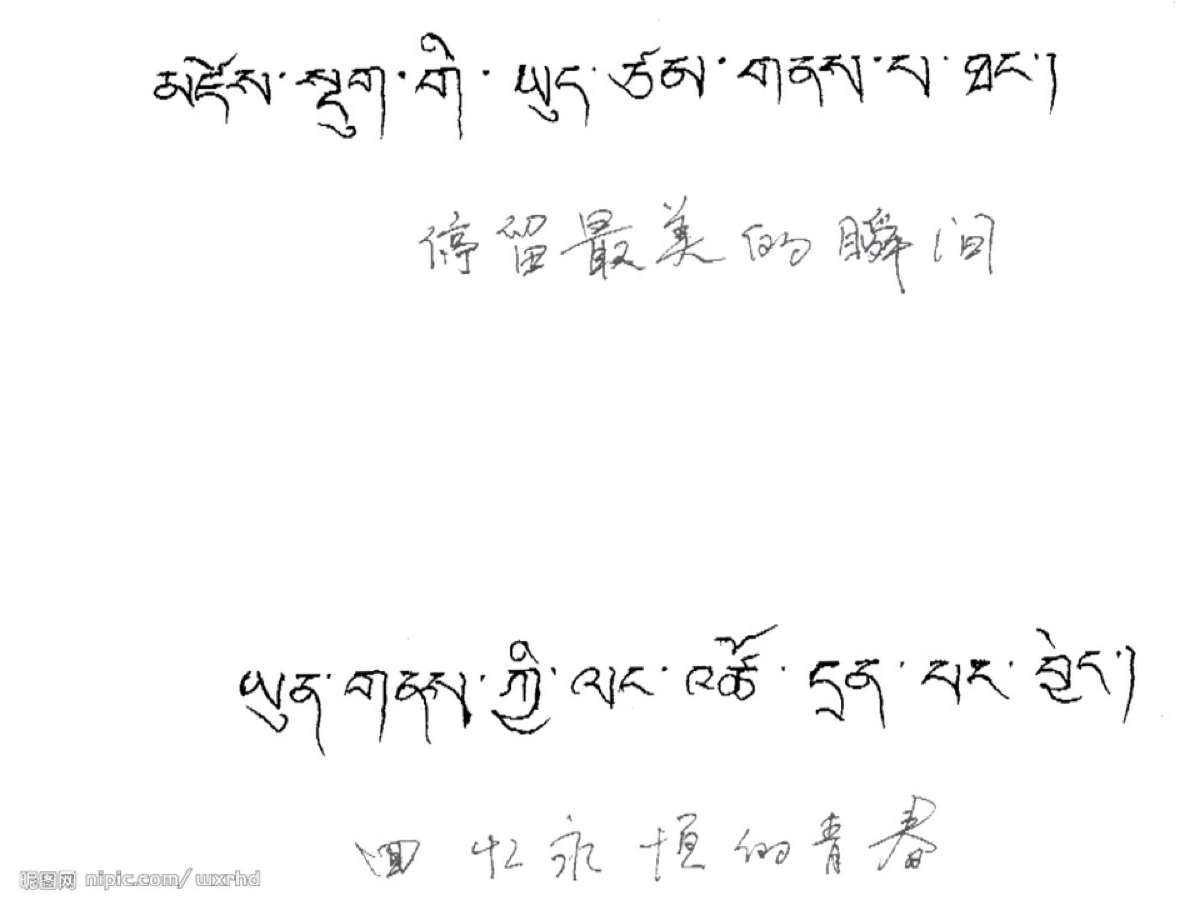 མཛེས་སྡུག་གི་ཡུད་ཙམ་གནས་པ་ཐང་།
停留最美的瞬间
ཡུན་གནས་ཀྱི་ལང་འཚོ་དྲན་པར་བྱེད།
回忆永恒的青春
昵图网 nipic.com/wxrhd